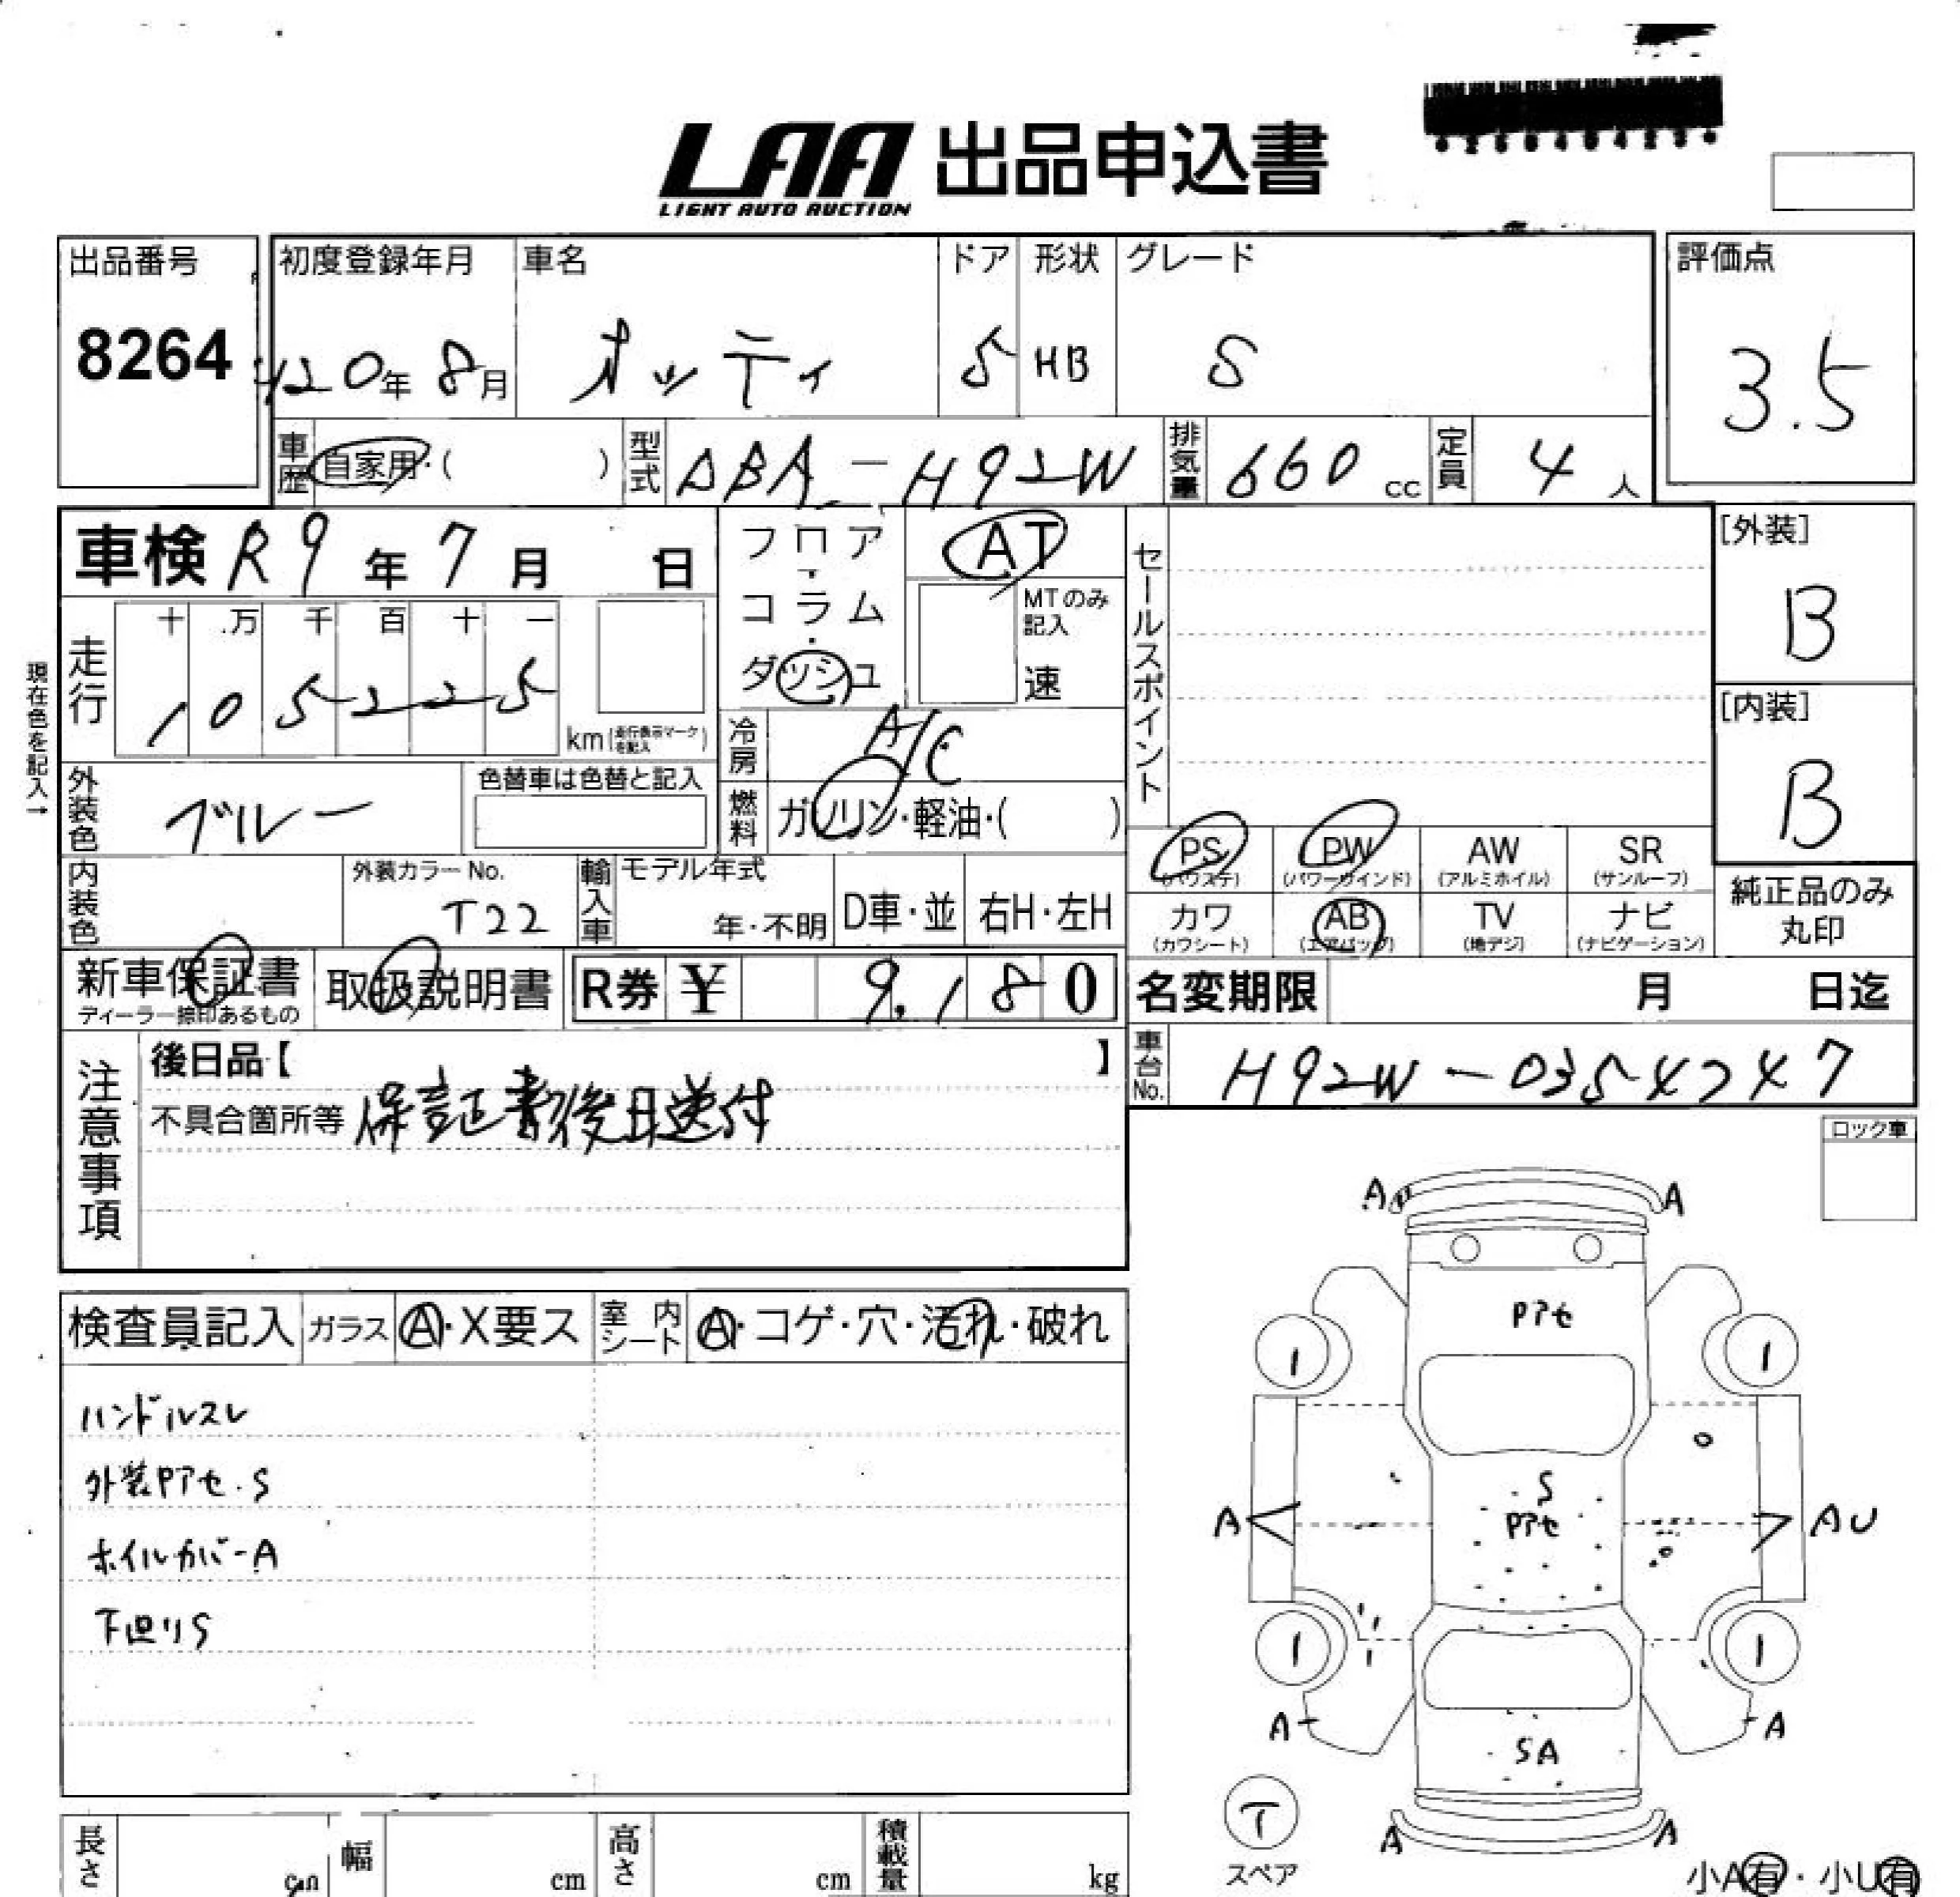 LAA 出品申込書
LIGHT AUTO AUCTION
出品番号 初度登録年月 車名 ドア 形状 グレード 評価点
8264 H20年 8月 オッティ 5 HB S 3.5
車歴 自家用・( ) 型式 DBA-H92W 排気量 660 cc 定員 4 人
車検 R9年 7月 日
フロア・コラム・ダッシュ
AT
MTのみ記入
速
セールスポイント
[外装]
B
現在色を記入→
走行 十 万 千 百 十 一
105225
km(走行表示マークを記入)
冷房 A/C
[内装]
B
外装色 ブルー 色替車は色替と記入
燃料 ガソリン・軽油・( )
PS (パワステ) PW (パワーウインド) AW (アルミホイル) SR (サンルーフ)
内装色 外装カラーNo. T22 輸入車 モデル年式 年・不明 D車・並 右H・左H
カワ (カワシート) AB (エアバッグ) TV (地デジ) ナビ (ナビゲーション)
純正品のみ丸印
新車保証書 ディーラー捺印あるもの 取扱説明書 R券 ¥ 9,180
名変期限 月 日迄
注意事項
後日品【 】
車台No. H92W-0354747
不具合箇所等 保証書後日送付
ロック車
検査員記入 ガラス A・X要ス 室内シート A・コゲ・穴・汚れ・破れ
ハンドルスレ
外装Pアセ・S
ホイルカバーA
下回りS
A A
Pアセ
1 1
S
A Pアセ AU
1 1
A A
SA
T
スペア
A A
小A有・小U有
長さ cm 幅 cm 高さ cm 積載量 kg